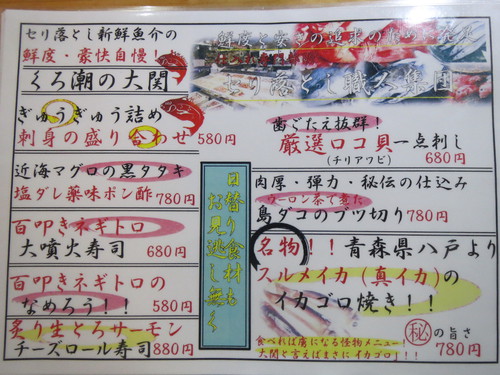 セリ落とし新鮮魚介の
鮮度・豪快自慢!!
くろ潮の大関
ぎゅうぎゅう詰め
刺身の盛り合わせ 580円
近海マグロの黒タタキ
塩ダレ薬味ポン酢 780円
百叩きネギトロ
大噴火寿司 680円
百叩きネギトロの
なめろう!! 580円
炙り生とろサーモン
チーズロール寿司 880円
日替り食材も
お見逃し無く
セリ落とし職人集団
歯ごたえ抜群!
厳選ロコ貝一点刺し
(チリアワビ) 680円
肉厚・弾力・秘伝の仕込み
ウーロン茶で煮た
島ダコのブツ切り 780円
名物!!青森県八戸より
スルメイカ(真イカ)の
イカゴロ焼き!!
㊙の旨さ
食べれば虜になる怪物メニュー!
大関と言えばまさにイカゴロ!!!
780円